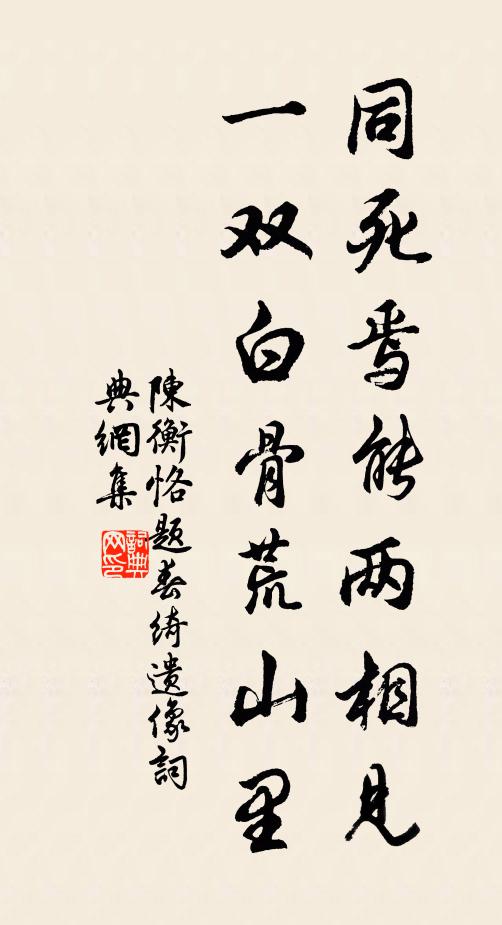 同死焉能两相见
一双白骨荒山里
陳衡恪题春绮遺像詞
典網集
詞典网印